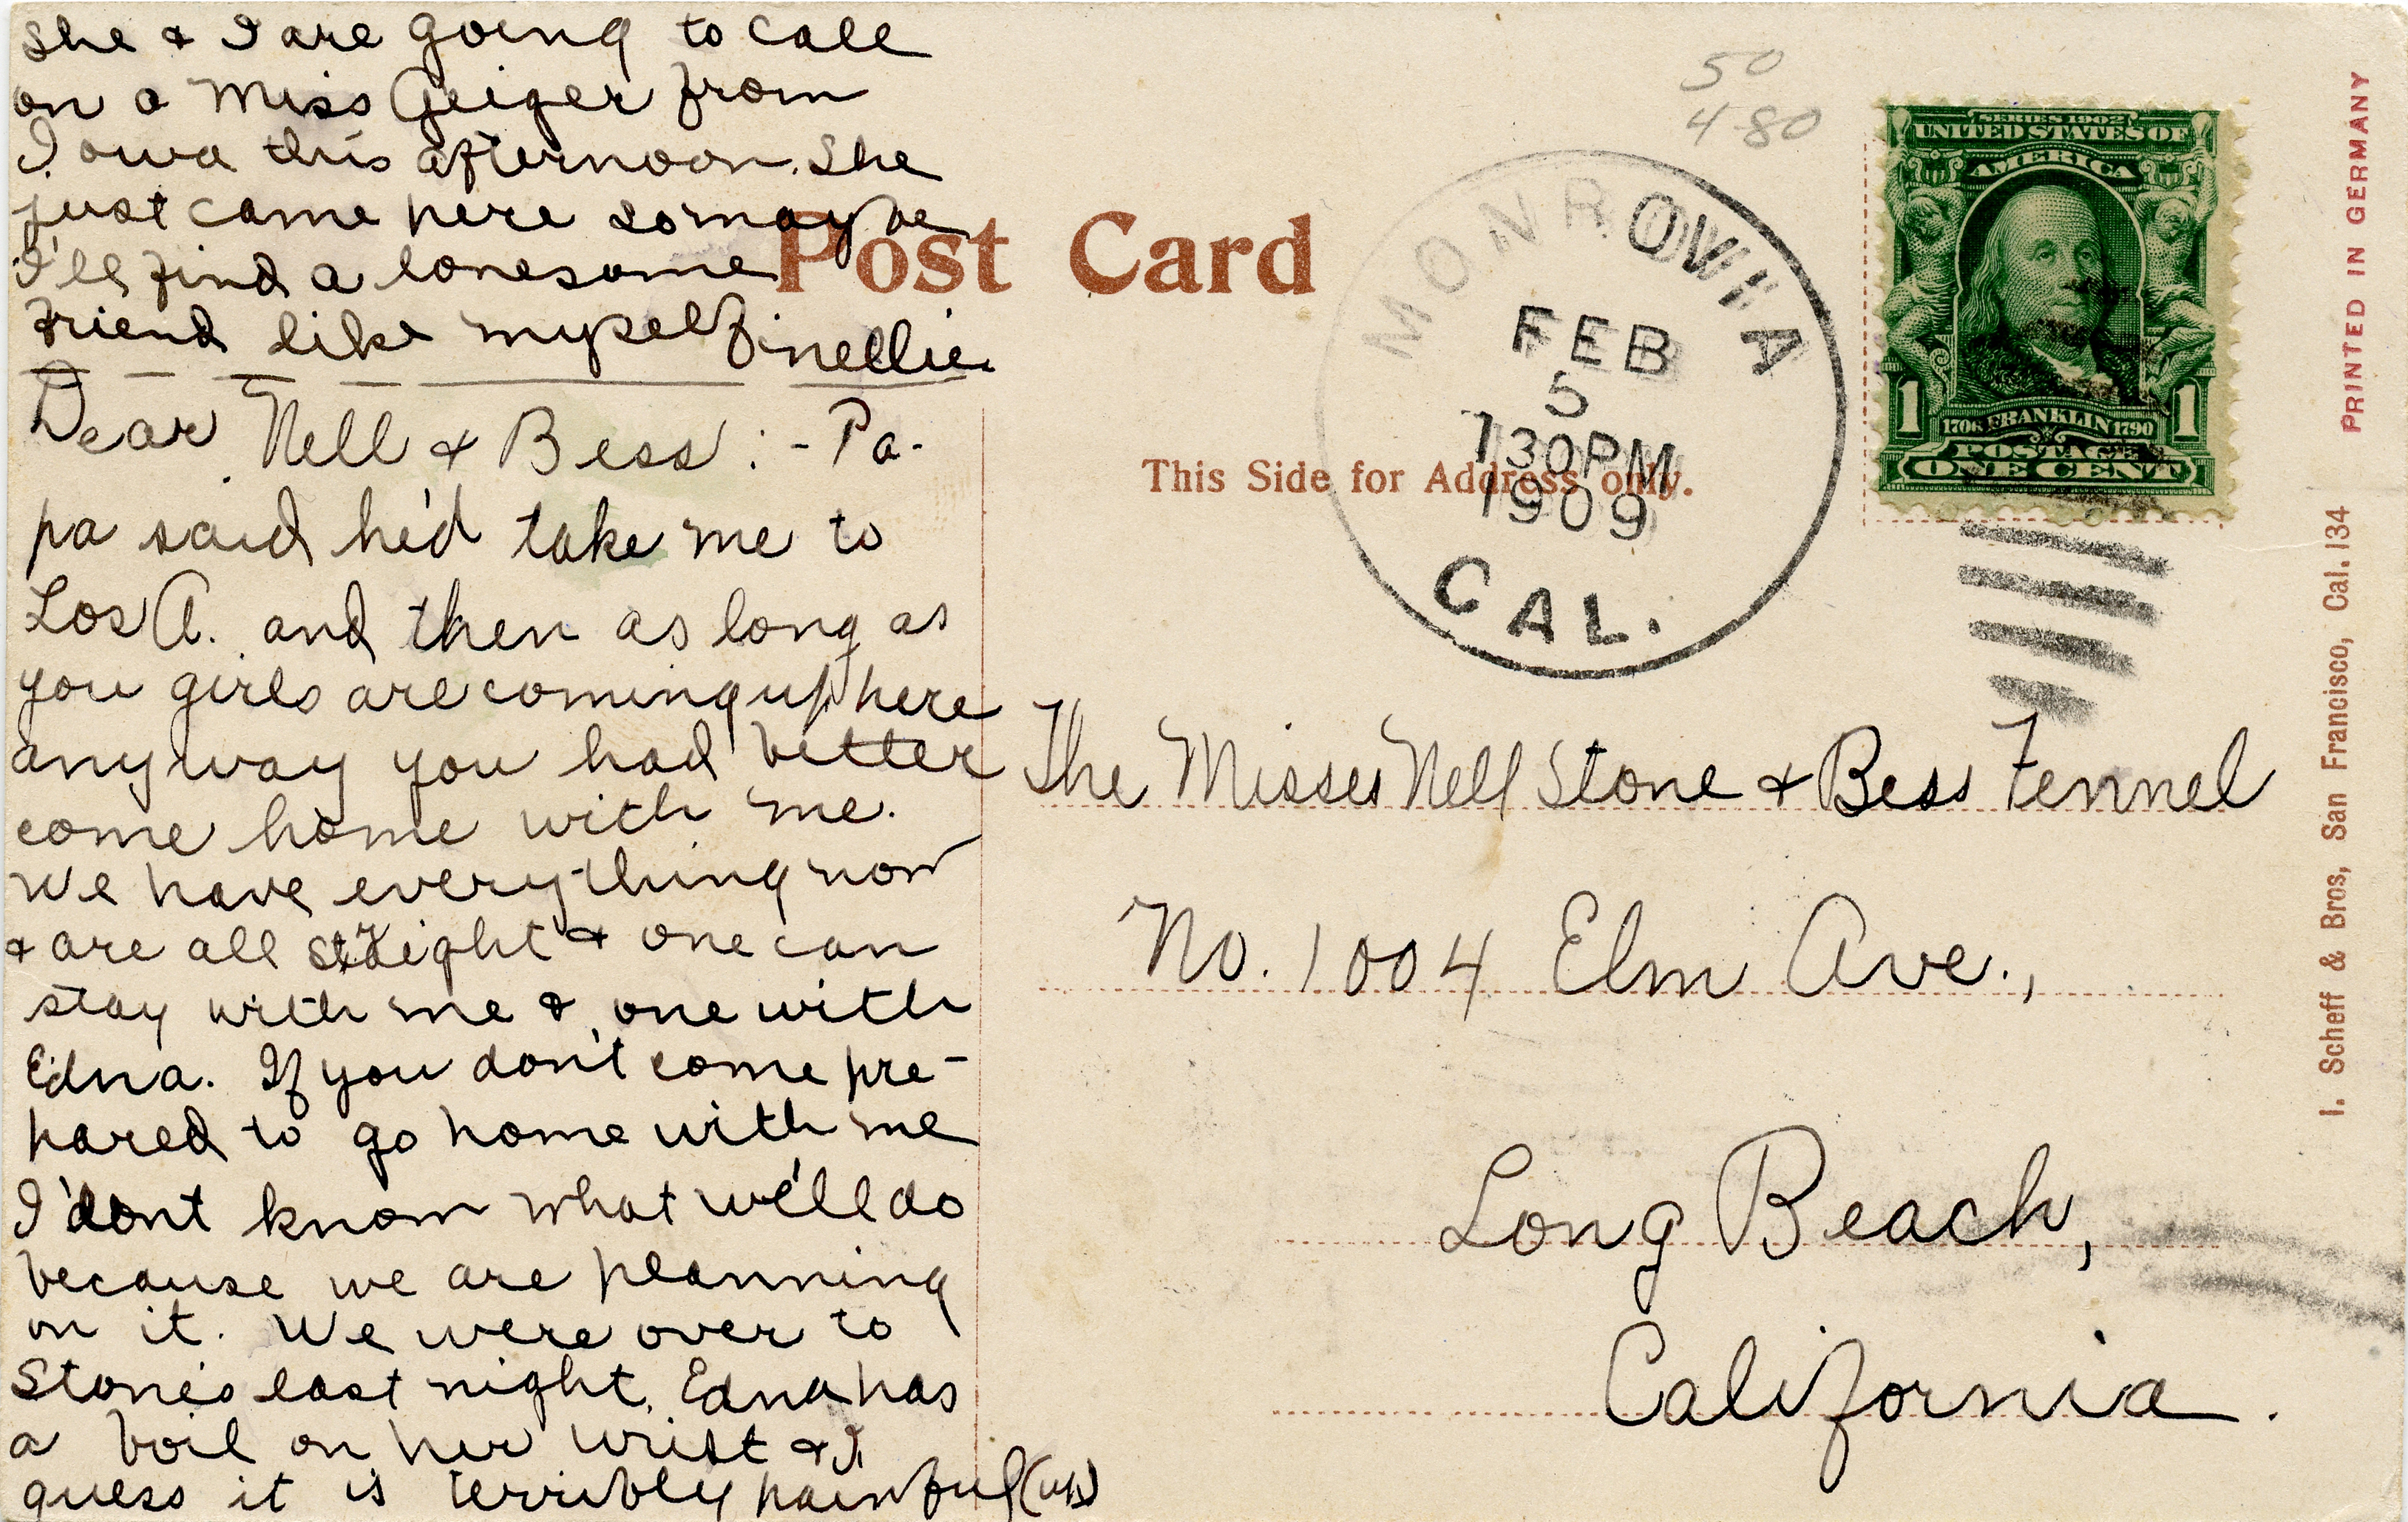 She & I are going to call
on a Miss Geiger from
Iowa this afternoon. She
just came here so maybe
I'll find a lonesome
friend like myself. Nellie.
Dear Nell & Bess: - Pa-
pa said he'd take me to
Los A. and then as long as
you girls are coming up here
anyway you had better
come home with me.
We have everything now
& are all straight & one can
stay with me & one with
Edna. If you don't come pre-
pared to go home with me
I don't know what we'll do
because we are planning
on it. We were over to
Stone's last night. Edna has
a boil on her wrist & I
guess it is terribly painful (up)
Post Card
This Side for Address only.
50
4 80
MONROVIA
FEB
5
730PM
1909
CAL.
SERIES 1902
UNITED STATES OF
AMERICA
1 1
1706 FRANKLIN 1790
POSTAGE
ONE CENT
The Misses Nell Stone & Bess Fennel
No. 1004 Elm Ave.,
Long Beach,
California.
I. Scheff & Bros, San Francisco, Cal. 134 PRINTED IN GERMANY